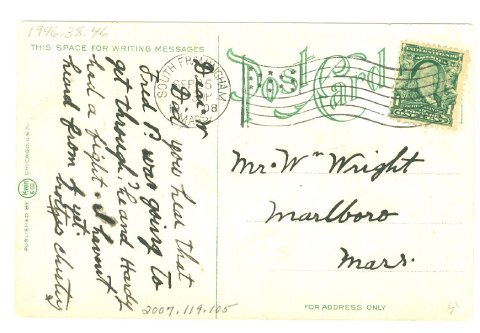 1996.38.46
THIS SPACE FOR WRITING MESSAGES
Post Card
SOUTH FRAMINGHAM
SEP 5
MASS.
Dear W
Did you hear that
Fred P. was going to
get through, he and Hardy
had a fight. I havent
heard from yet.
Mr. Wm Wright
Marlboro
Mass.
PUBLISHED BY
CHICAGO, U.S.A.
2007.119.105
FOR ADDRESS ONLY